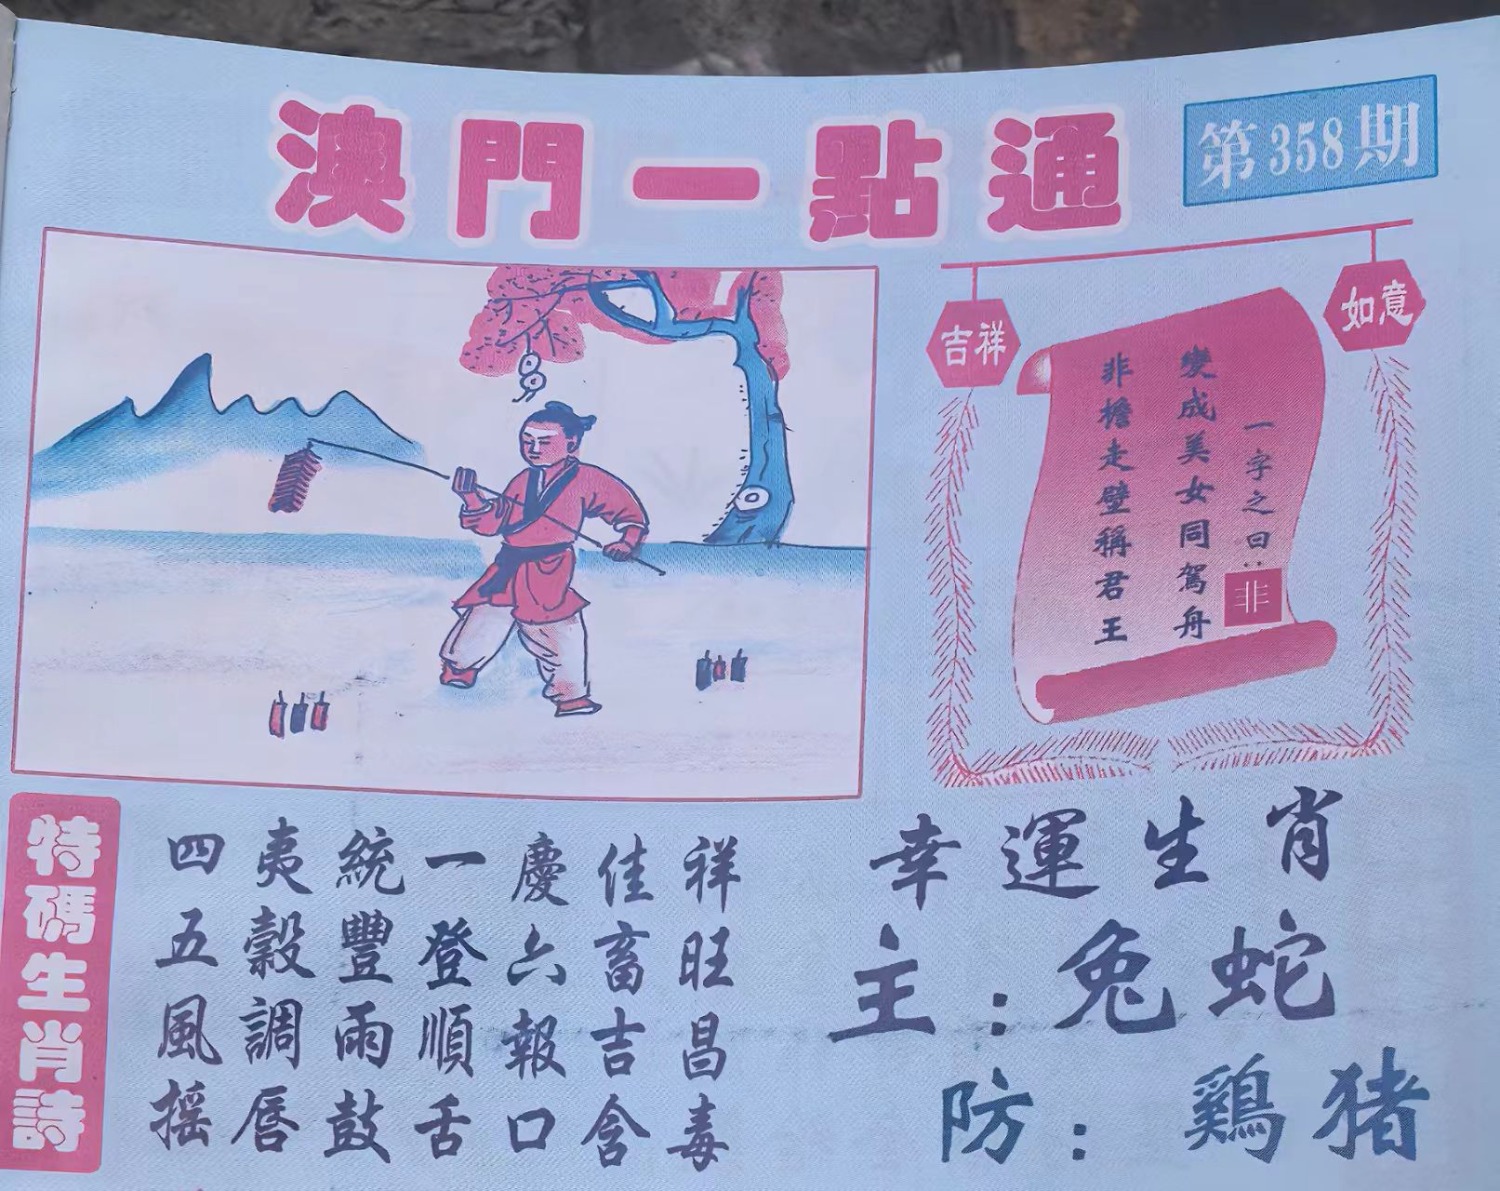 澳門一點通
第358期
吉祥
如意
一字之曰：非
變成美女同駕舟
非檐走壁稱君王
特碼生肖詩
四夷統一慶佳祥
五穀豐登六畜旺
風調雨順報吉昌
摇唇鼓舌口含毒
幸運生肖
主：兔蛇
防：鷄猪